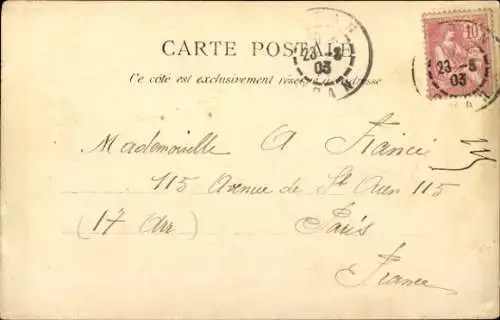 CARTE POSTALE
Ce côté est exclusivement réservé à l'adresse
10
23 -5
03
23 -5
03
Mademoiselle A
115 Avenue de St Ouen 115
(17 Arr)
Paris
France